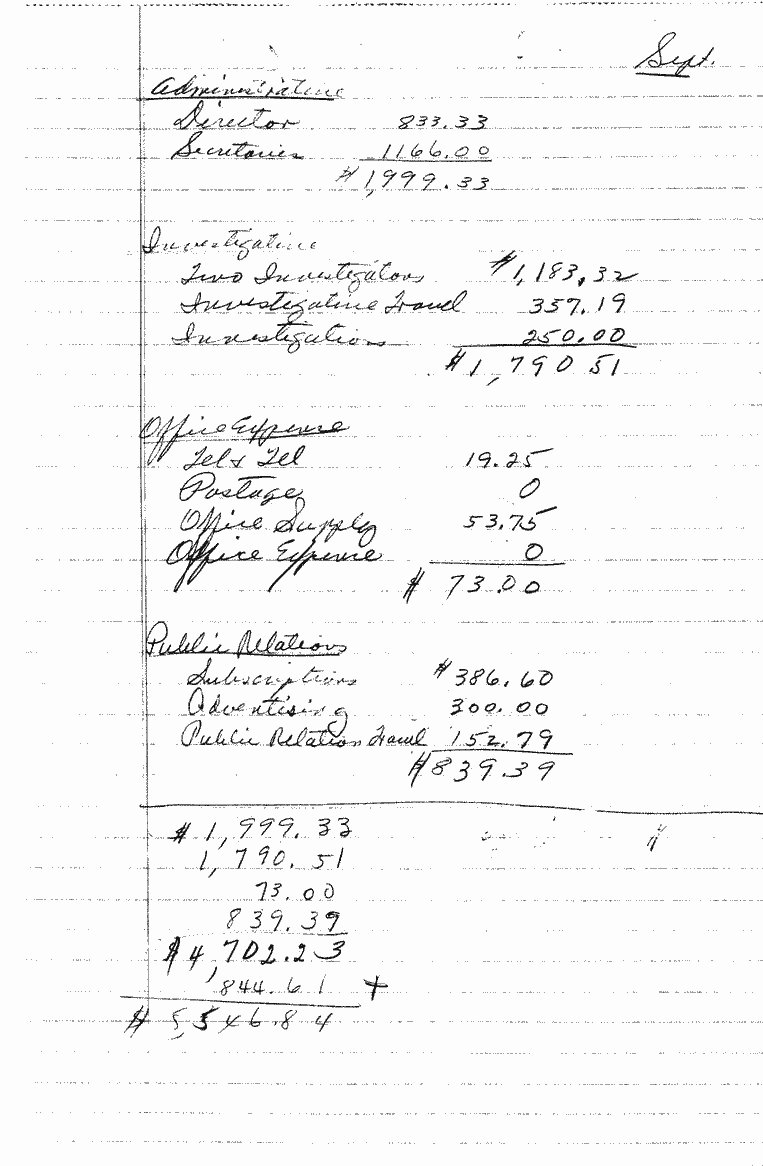 Sept.
Administrative
Director 833.33
Secretaries 1166.00
$1,999.33
Investigative
Two Investigators $1,183.32
Investigative Travel 357.19
Investigations 250.00
$1,790 51
Office Expense
Tel & Tel 19.25
Postage 0
Office Supply 53.75
Office Expense 0
$ 73.00
Public Relations
Subscriptions $386.60
Advertising 300.00
Public Relation Travel 152.79
$839.39
$1,999.33
1,790.51
73.00
839.39
$4,702.23
844.61 +
$5,546.84